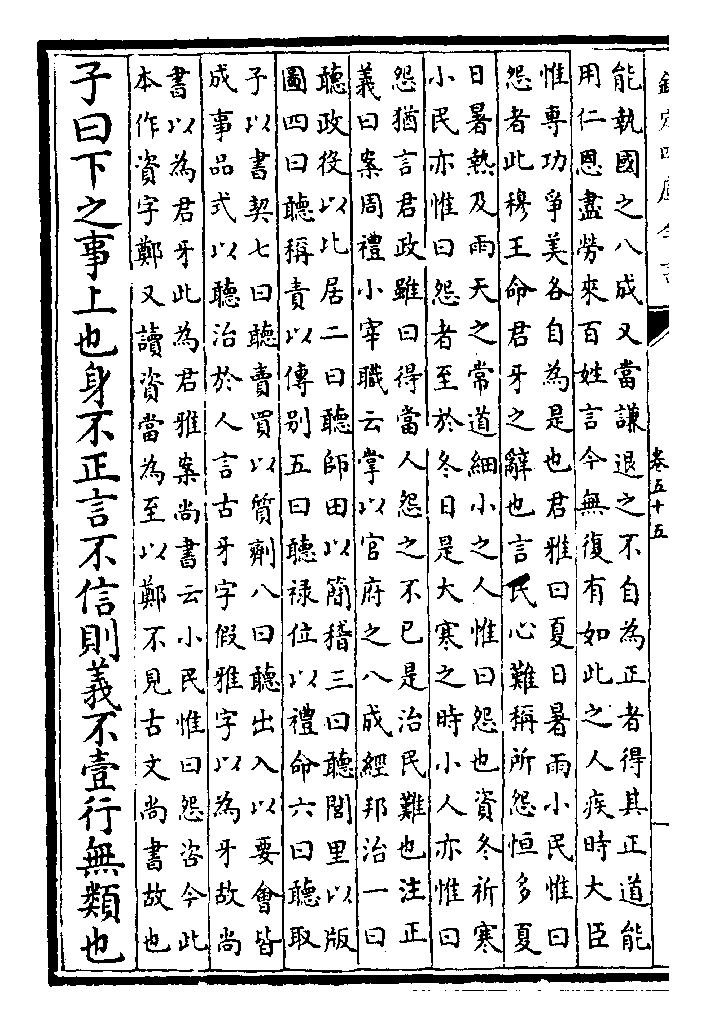 欽定四庫全書
卷五十五
能執國之八成又當謙退之不自為正者得其正道能
用仁恩盡勞來百姓言今無復有如此之人疾時大臣
惟專功爭美各自為是也君雅曰夏日暑雨小民惟曰
怨者此穆王命君牙之辭也言民心難稱所怨恒多夏
日暑熱及雨天之常道細小之人惟曰怨也資冬祈寒
小民亦惟曰怨者至於冬日是大寒之時小人亦惟曰
怨猶言君政雖曰得當人怨之不已是治民難也注正
義曰案周禮小宰職云掌以官府之八成經邦治一曰
聽政役以比居二曰聽師田以簡稽三曰聽閭里以版
圖四曰聽稱責以傳别五曰聽禄位以禮命六曰聽取
子以書契七曰聽賣買以質劑八曰聽出入以要會皆
成事品式以聽治於人言古牙字假雅字以為牙故尚
書以為君牙此為君雅案尚書云小民惟曰怨咨今此
本作資字鄭又讀資當為至以鄭不見古文尚書故也
子曰下之事上也身不正言不信則義不壹行無類也